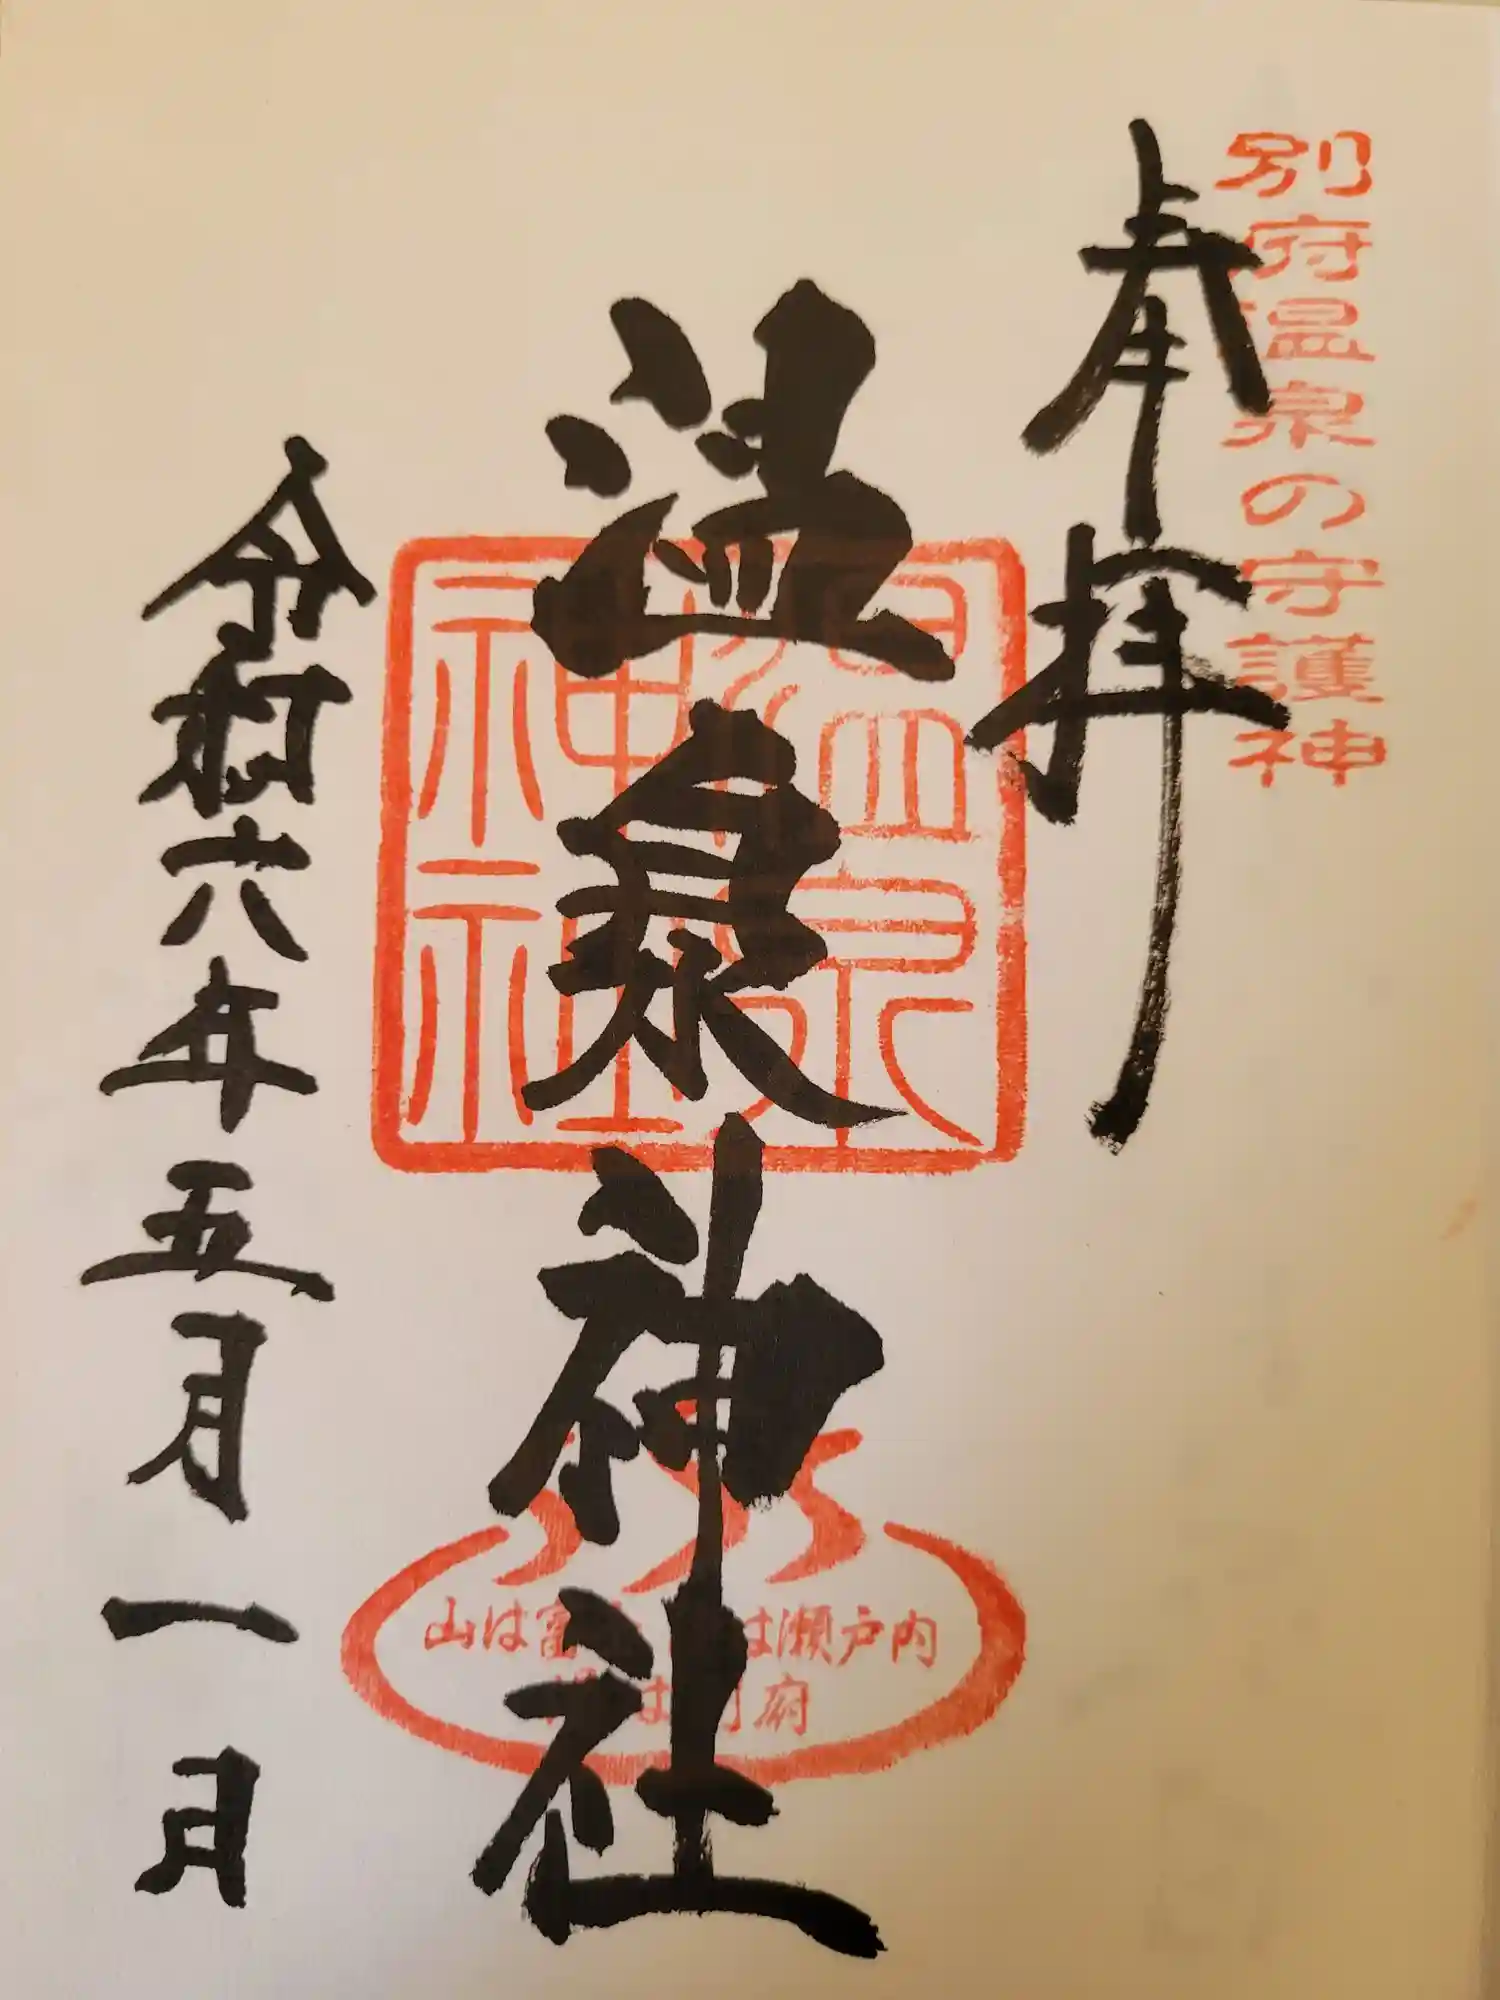 別府温泉の守護神
奉拝
温泉神社
温泉
神社
山は富士 海は瀬戸内
湯は別府
令和六年五月一日